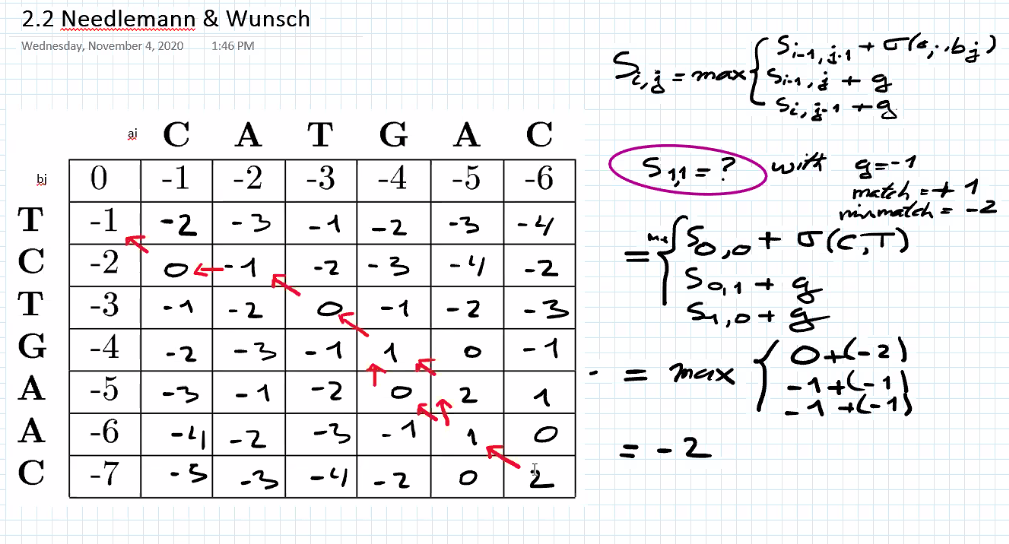 2.2 Needlemann & Wunsch
Wednesday, November 4, 2020 1:46 PM
ai C A T G A C
bj 0 -1 -2 -3 -4 -5 -6
T -1 -2 -3 -1 -2 -3 -4
C -2 0 -1 -2 -3 -4 -2
T -3 -1 -2 0 -1 -2 -3
G -4 -2 -3 -1 1 0 -1
A -5 -3 -1 -2 0 2 1
A -6 -4 -2 -3 -1 1 0
C -7 -5 -3 -4 -2 0 2
S i,j = max { S i-1,j-1 + σ(ai,bj)
S i-1,j + g
S i,j-1 + g
S 1,1 = ? with g=-1
match = + 1
mismatch = -2
= max { S 0,0 + σ(C,T)
S 0,1 + g
S 1,0 + g
= max { 0+(-2)
-1+(-1)
-1+(-1)
= -2